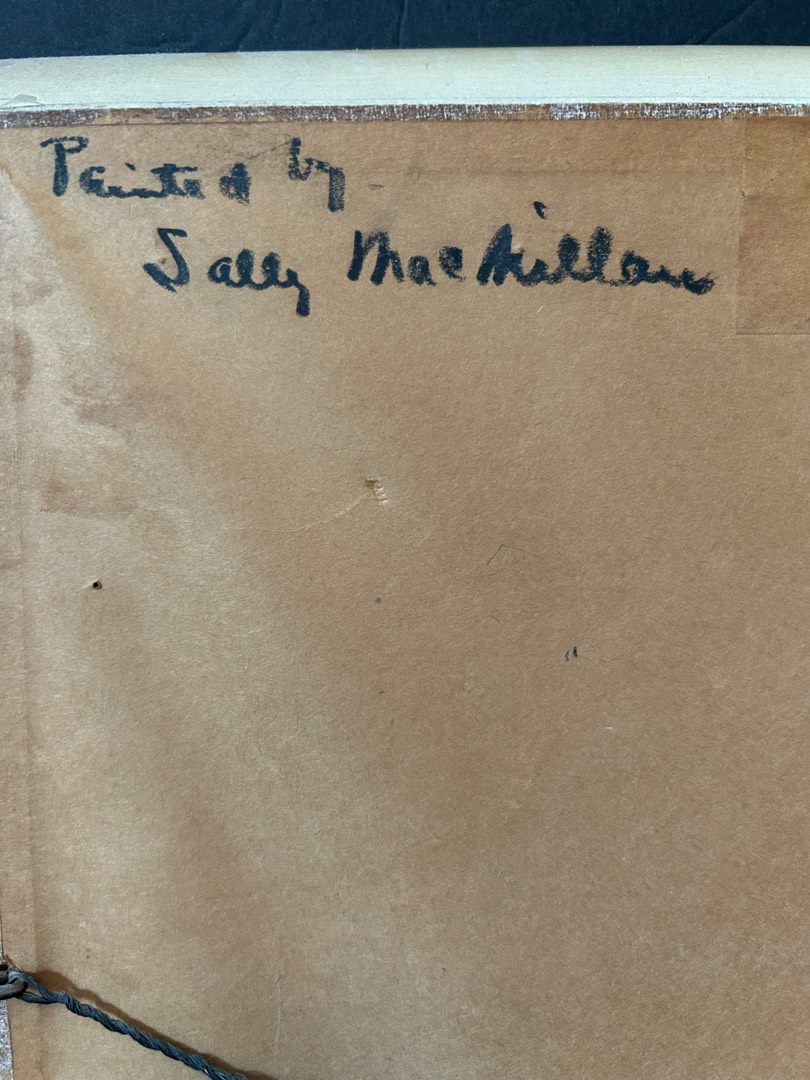 Painted by -
Sally MacMillan